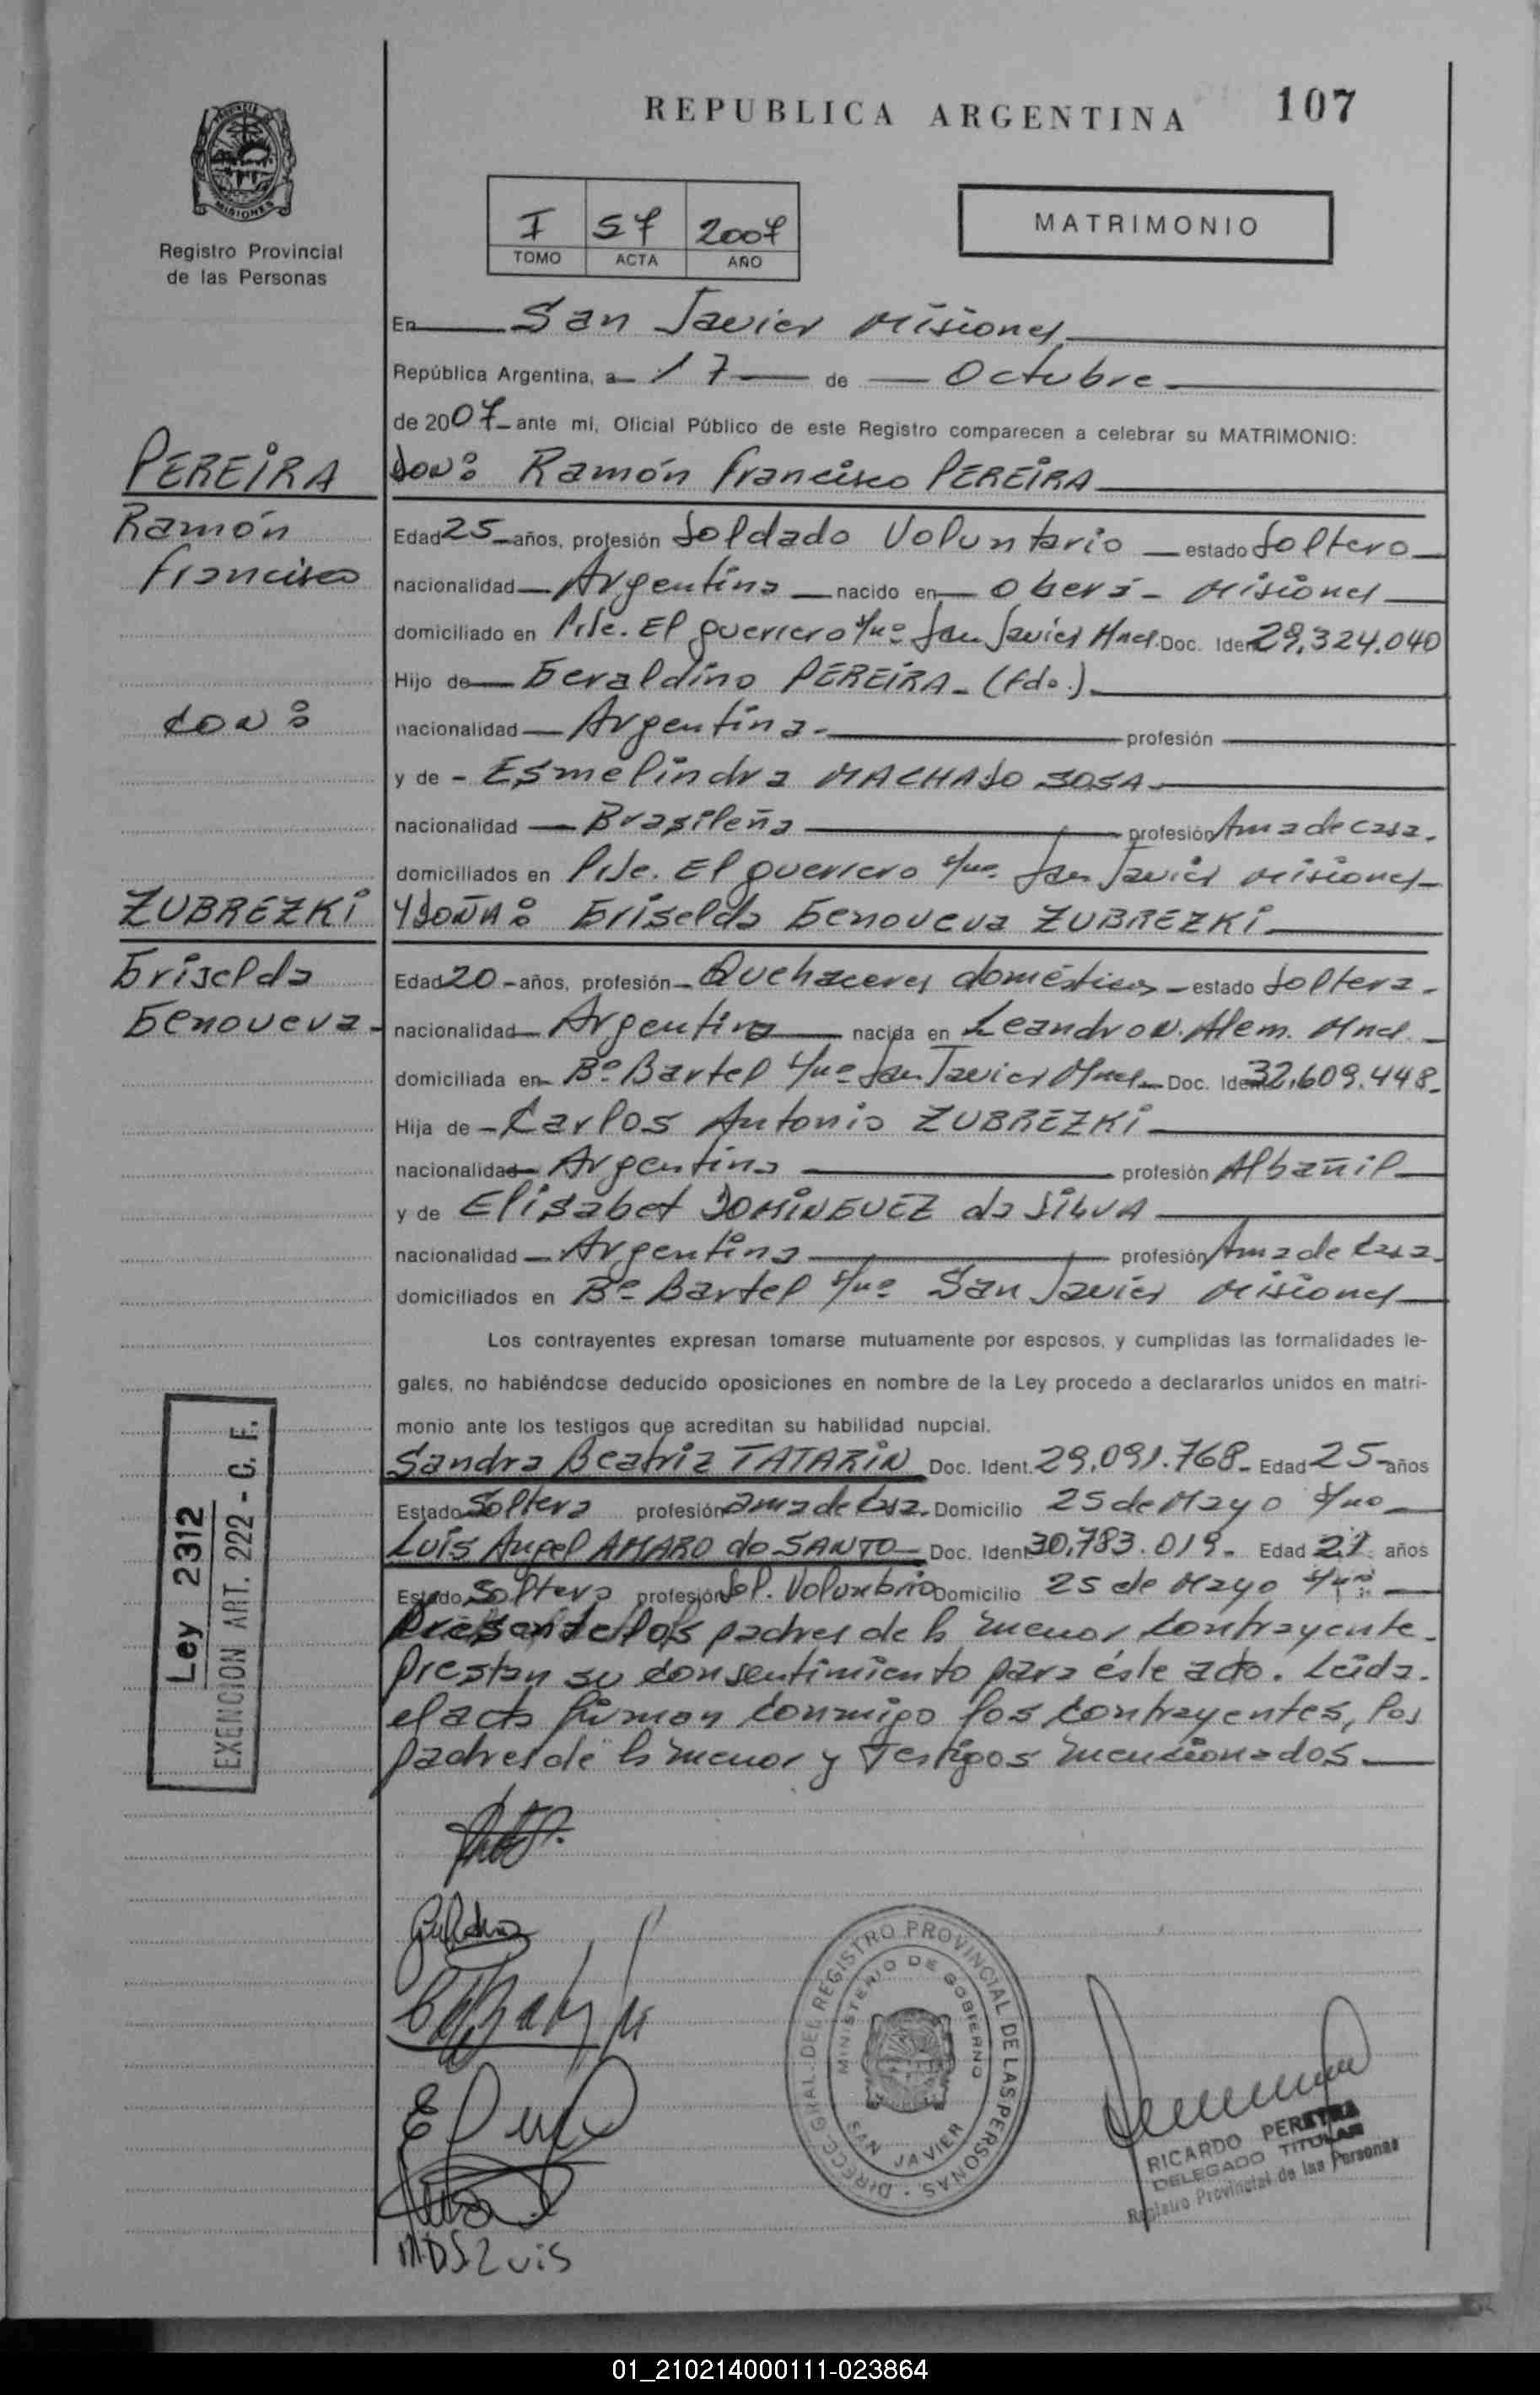 REPUBLICA ARGENTINA 107
MISIONES
Registro Provincial
de las Personas
I 57 2007
TOMO ACTA AÑO
MATRIMONIO
En San Javier Misiones
República Argentina, a 17 de Octubre
de 2007 ante mi, Oficial Público de este Registro comparecen a celebrar su MATRIMONIO:
PEREIRA
Ramón
Francisco
CON:
ZUBREZKI
Griselda
Genoveva
DON: Ramón Francisco PEREIRA
Edad 25 años, profesión Soldado Voluntario estado Soltero
nacionalidad Argentina nacido en Oberá - Misiones
domiciliado en Pje. El guerrero s/nº San Javier Mnes. Doc. Ident. 29.324.040
Hijo de Geraldino PEREIRA - (fdo.)
nacionalidad Argentina - profesión
y de - Esmelindra MACHADO SOSA
nacionalidad Brasileña profesión Ama de casa.
domiciliados en Pje. El guerrero s/nº San Javier Misiones
Y DOÑA: Griselda Genoveva ZUBREZKI
Edad 20 - años, profesión - Quehaceres domésticos - estado Soltera -
nacionalidad Argentina nacida en Leandro N. Alem. Mnes.
domiciliada en Bº Bartel s/nº San Javier Mnes. Doc. Ident. 32.609.448.
Hija de - Carlos Antonio ZUBREZKI
nacionalidad Argentina profesión Albañil
y de Elisabet DOMINGUEZ da SILVA
nacionalidad Argentina profesión Ama de Casa
domiciliados en Bº Bartel s/nº San Javier Misiones
Los contrayentes expresan tomarse mutuamente por esposos, y cumplidas las formalidades le-
gales, no habiéndose deducido oposiciones en nombre de la Ley procedo a declararlos unidos en matri-
monio ante los testigos que acreditan su habilidad nupcial.
Sandra Beatriz TATARIN Doc. Ident. 29.091.768 - Edad 25 años
Estado Soltera profesión ama de casa. Domicilio 25 de Mayo s/nº
Luis Angel AMARO do SANTO Doc. Ident. 30.783.019 - Edad 21 años
Estado Soltero profesión Sol. Voluntario Domicilio 25 de Mayo s/nº
Presente los padres de la menor contrayente
prestan su consentimiento para éste acto. Leída
el acta firman conmigo los contrayentes, los
padres de la menor y Testigos mencionados.
Ley 2312
EXENCION ART. 222 - C. F.
DIRECC. GRAL. DEL REGISTRO PROVINCIAL DE LAS PERSONAS
MINISTERIO DE GOBIERNO
SAN JAVIER
RICARDO PEREYRA
DELEGADO TITULAR
Registro Provincial de las Personas
Luis
01_210214000111-023864